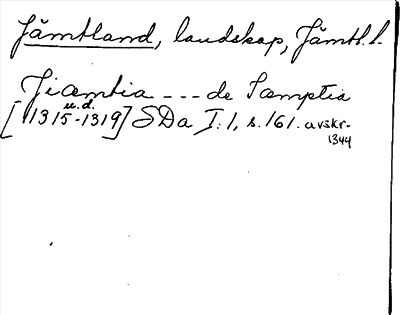 Jämtland, landskap, Jämtl. l.
Jiæmtia --- de Iæmptia
u.d.
[1315-1319] SDa I:1, s. 161. avskr.
1344